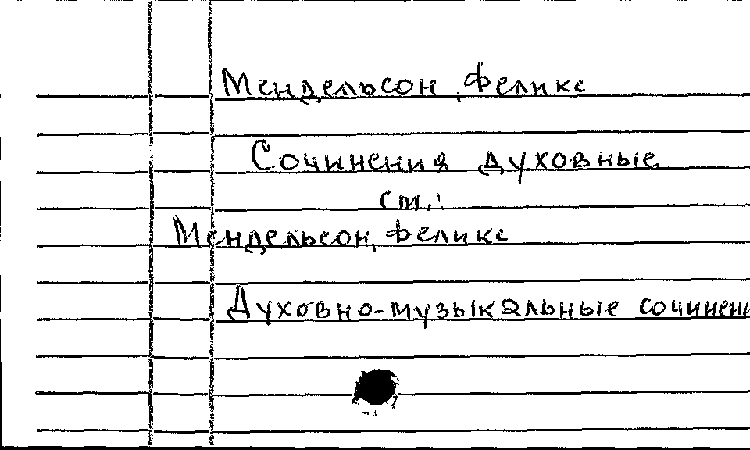 Мендельсон, Феликс
Сочинения духовные
см.:
Мендельсон, Феликс
Духовно-музыкальные сочинени